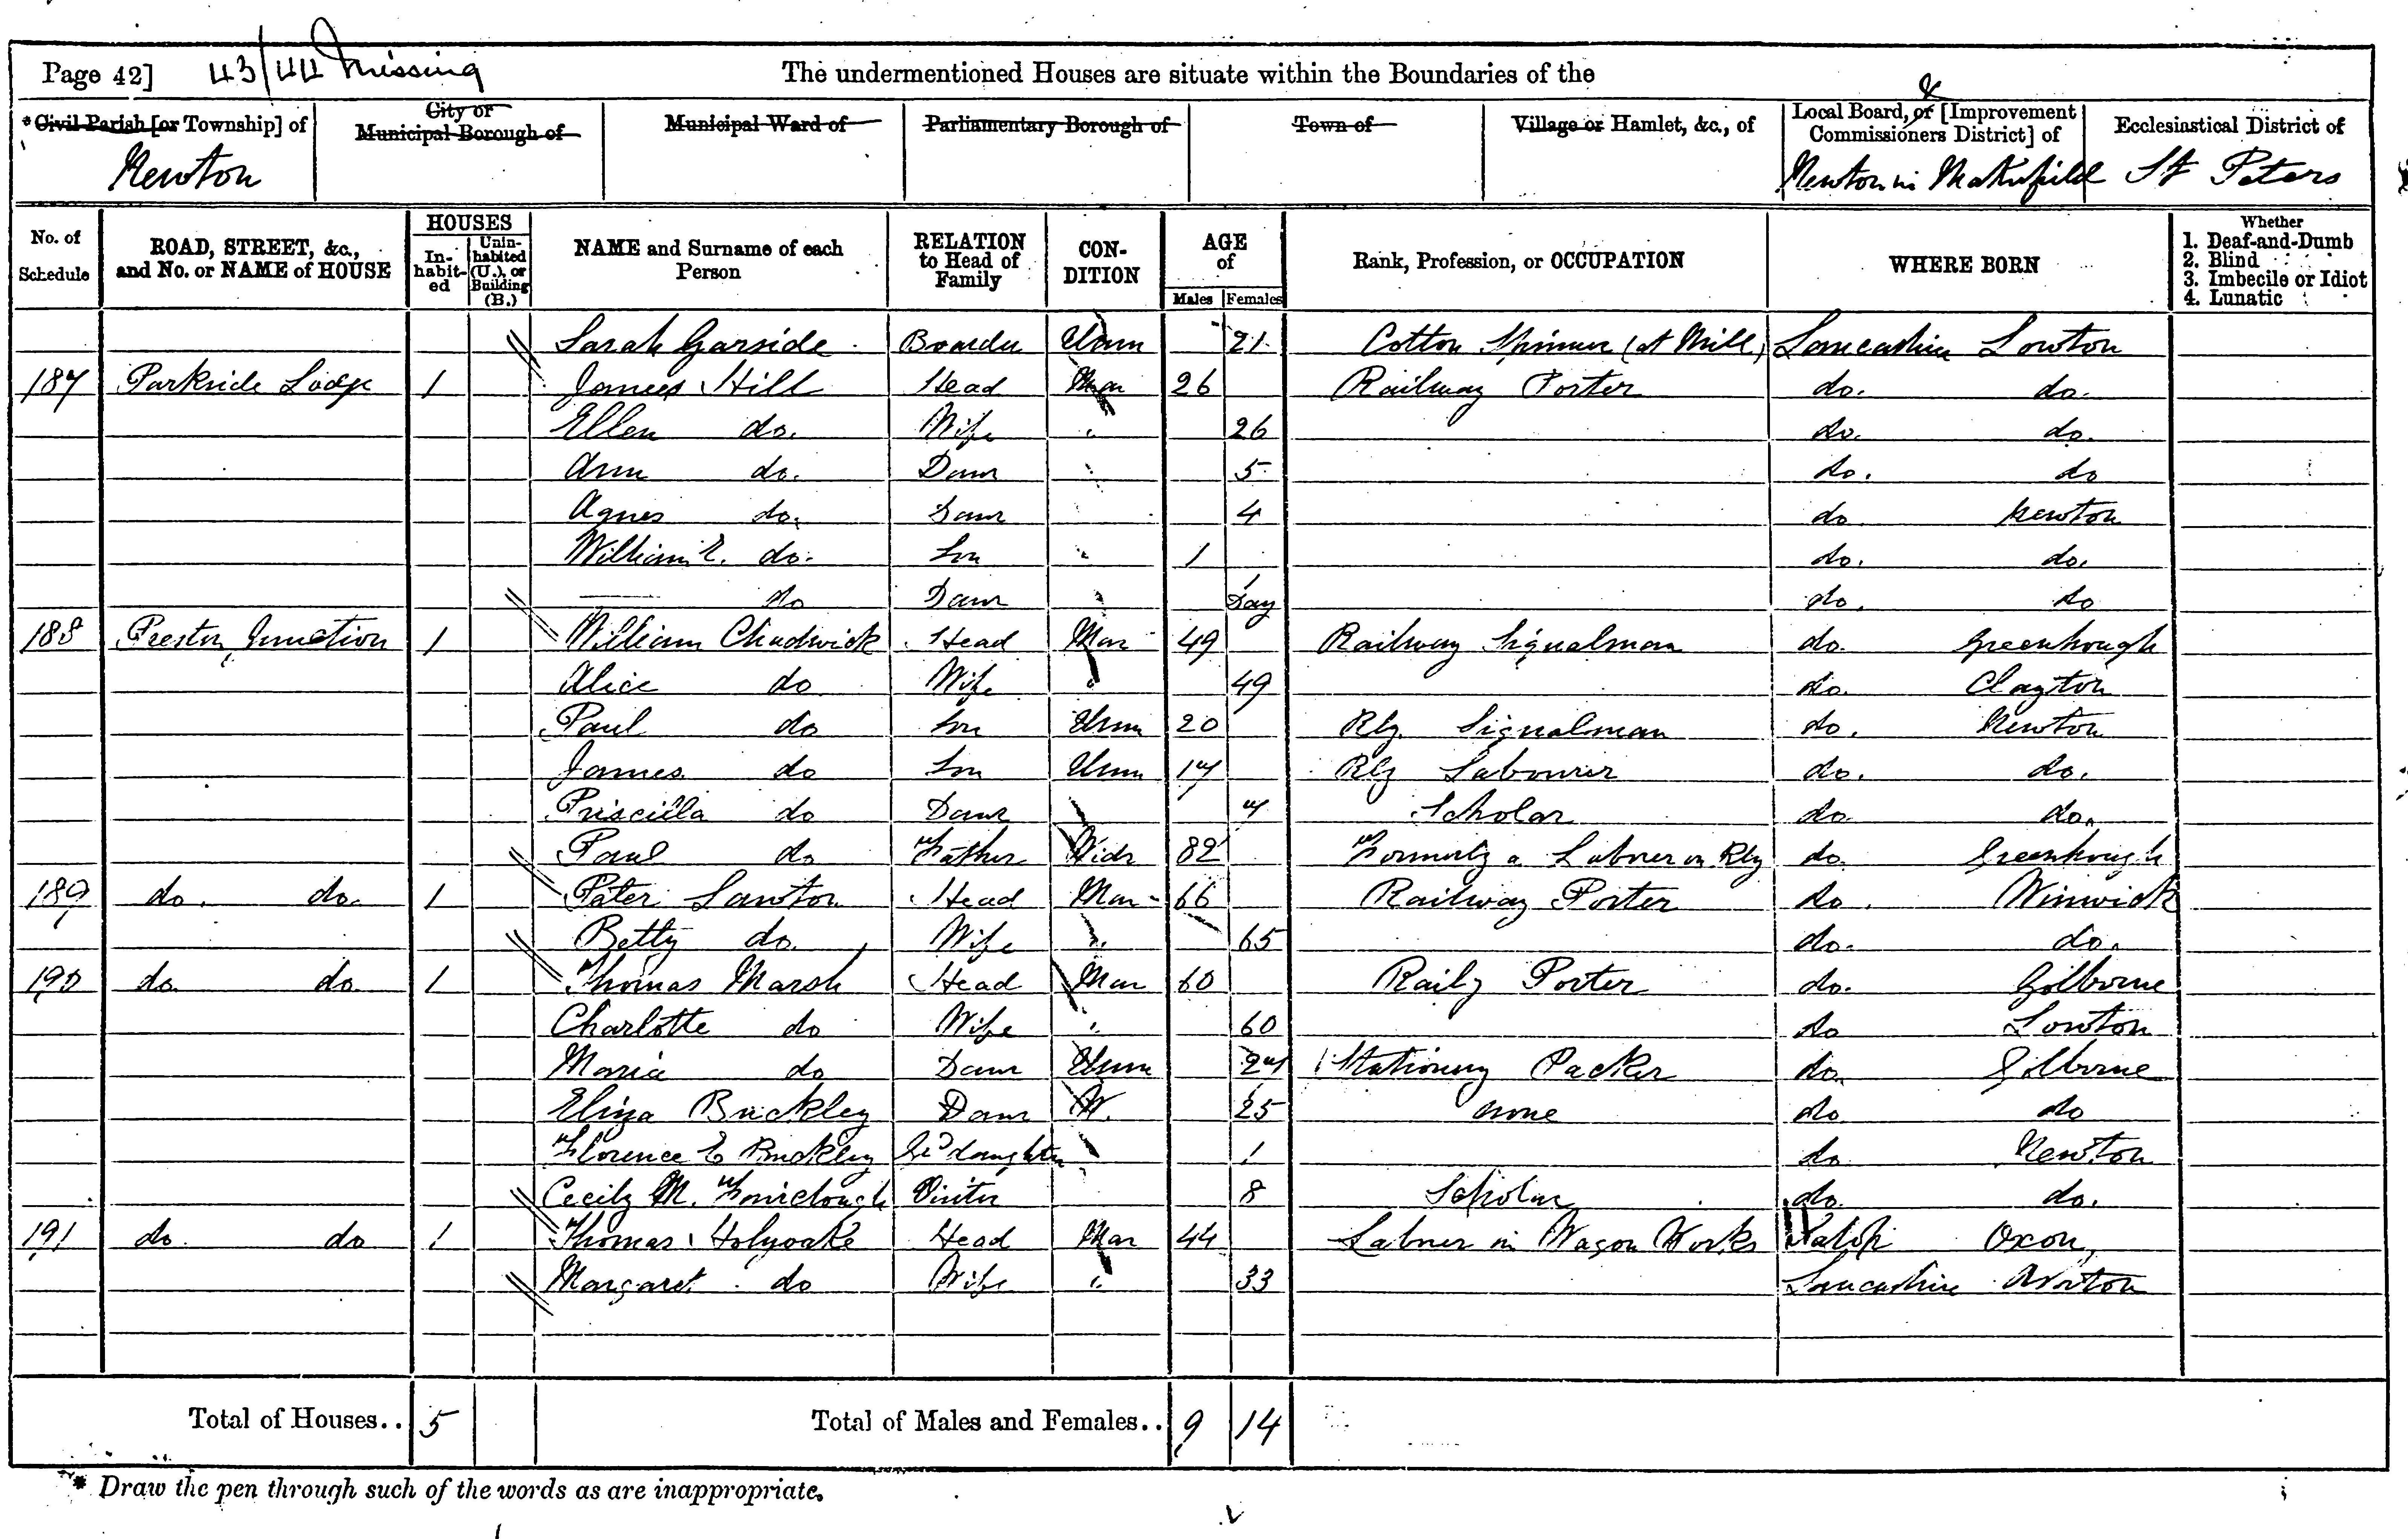 Page 42] 43/44 Missing The undermentioned Houses are situate within the Boundaries of the
*Civil Parish [or Township] of City or Municipal Borough of Municipal Ward of Parliamentary Borough of Town of Village or Hamlet, &c., of Local Board, or & [Improvement Commissioners District] of Ecclesiastical District of
Newton Newton in Makerfield St Peters
No. of Schedule ROAD, STREET, &c., and No. or NAME of HOUSE HOUSES Inhabited Uninhabited (U.), or Building (B.) NAME and Surname of each Person RELATION to Head of Family CONDITION AGE of Males Females Rank, Profession, or OCCUPATION WHERE BORN Whether 1. Deaf-and-Dumb 2. Blind 3. Imbecile or Idiot 4. Lunatic
Sarah Garside Boarder Unm 21 Cotton Spinner (at Mill) Lancashire Lowton
187 Parkside Lodge 1 James Hill Head Mar 26 Railway Porter do. do.
Ellen do. Wife " 26 do. do.
Ann do. Daur " 5 do. do
Agnes do. Daur 4 do Newton
William E. do. Son " 1 do. do.
— do Daur " 1 Day do. do
188 Preston Junction 1 William Chadwick Head Mar 49 Railway Signalman do. Greenhough
Alice do Wife " 49 do. Clayton
Paul do Son Unm 20 Rly. Signalman do. Newton
James do Son Unm 17 Rly Labourer do. do.
Priscilla do Daur 7 Scholar do do.
Paul do Father Widr 82 Formerly a Labrer on Rly do. Greenhough
189 do. do. 1 Peter Lawton Head Mar 66 Railway Porter do. Winwick
Betty do. Wife " 65 do. do.
190 do. do. 1 Thomas Marsh Head Mar 60 Raily Porter do. Golborne
Charlotte do Wife " 60 do Lowton
Maria do Daur Unm 27 Stationery Packer do. Golborne
Eliza Buckley Daur W. 25 none do do
Florence E Buckley Gd daughter 1 do Newton
Cecily M. Fairclough Visitor 8 Scholar do. do.
191 do. do 1 Thomas Holyoake Head Mar 44 Labrer in Wagon Works Salop Oxon
Margaret do Wife " 33 Lancashire
Total of Houses.. 5 Total of Males and Females.. 9 14
* Draw the pen through such of the words as are inappropriate.